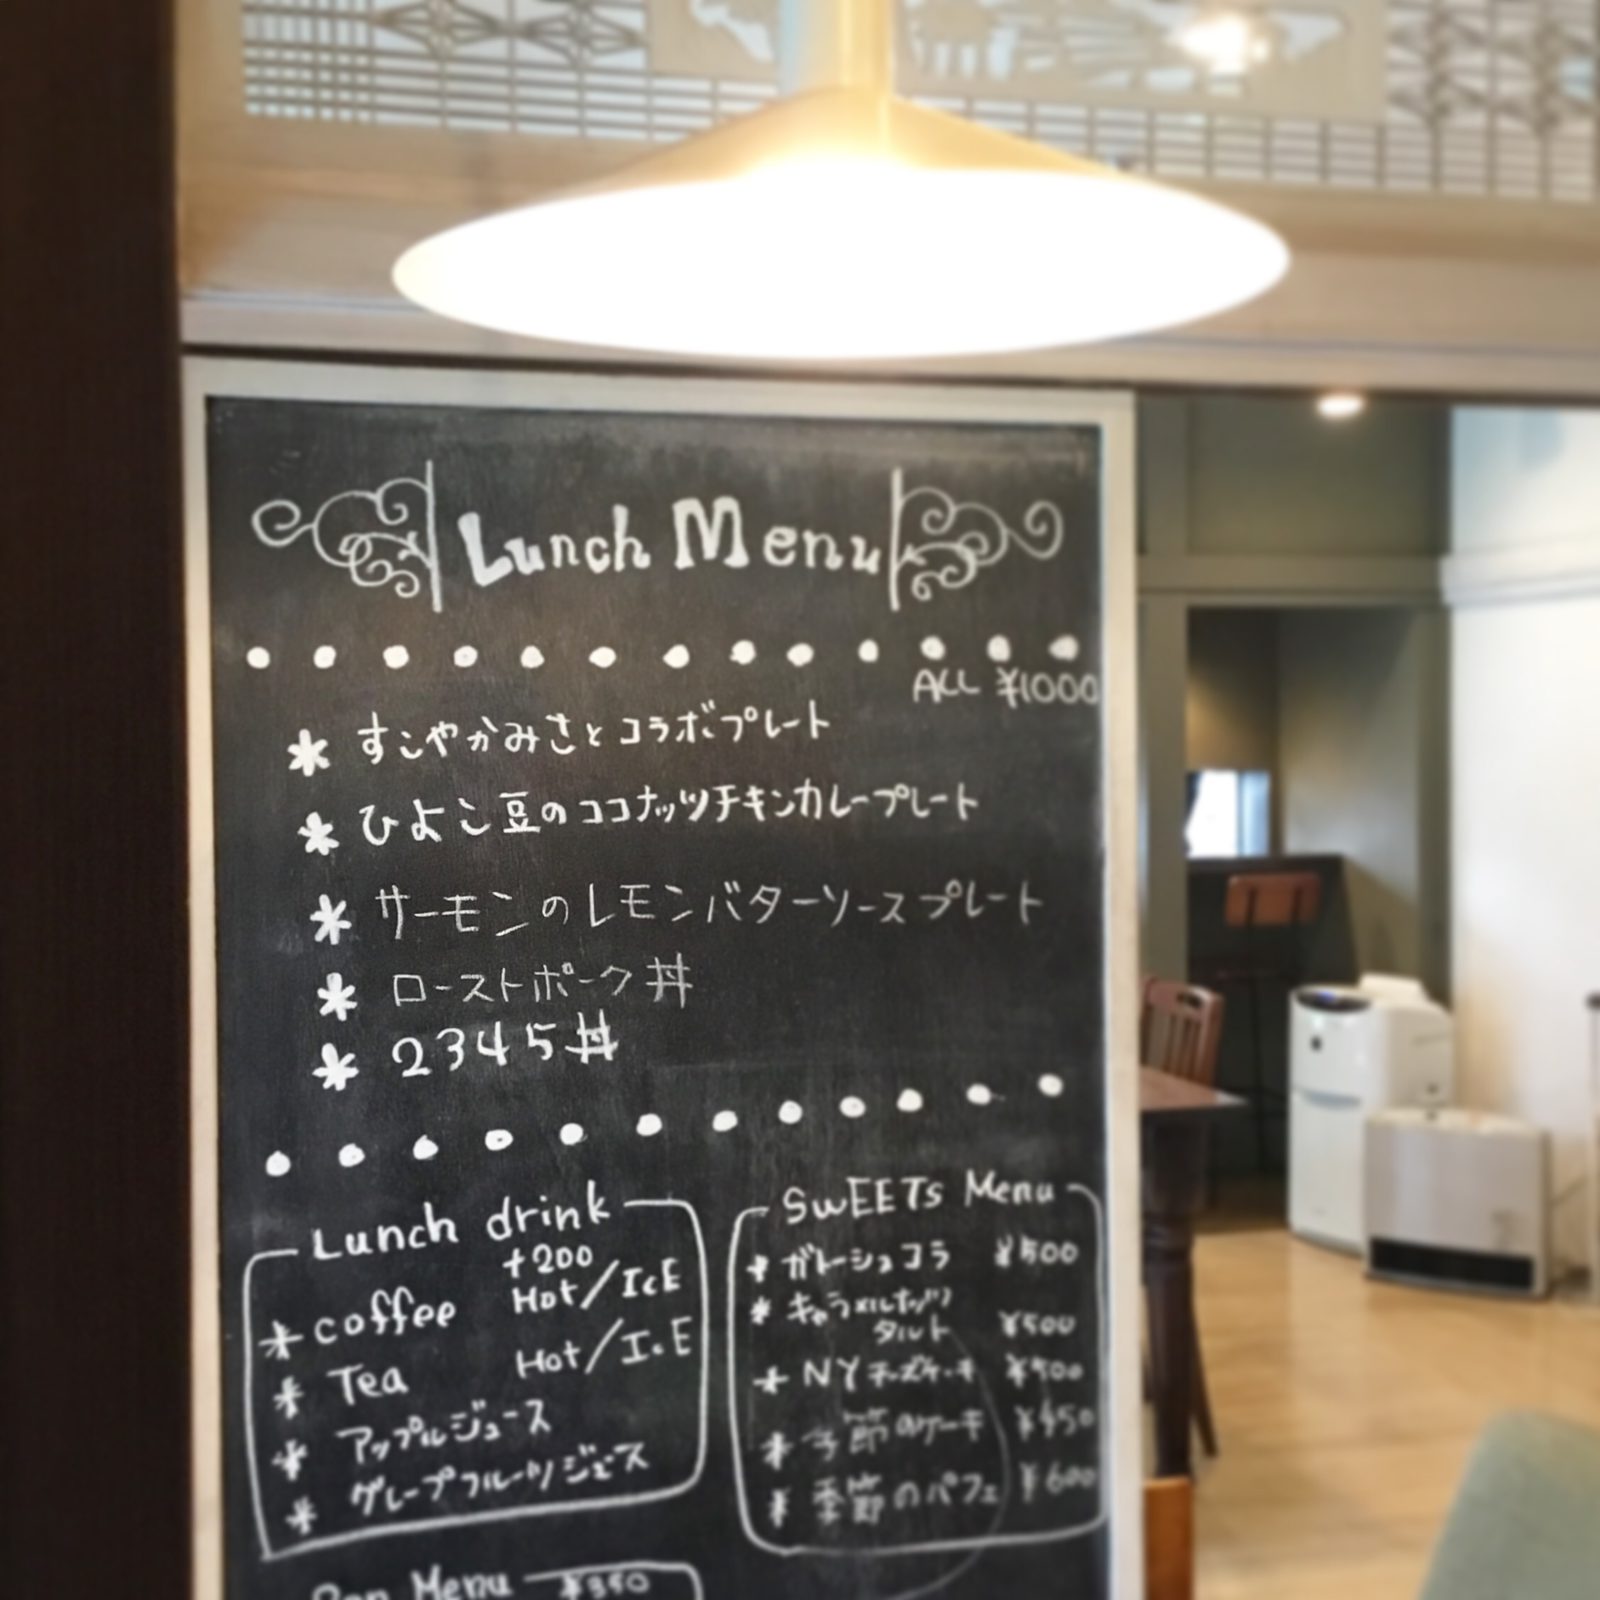 Lunch Menu
ALL ¥1000
* すこやかみさとコラボプレート
* ひよこ豆のココナッツチキンカレープレート
* サーモンのレモンバターソースプレート
* ローストポーク丼
* 2345丼
Lunch drink
+200
* coffee Hot/IcE
* Tea Hot/IcE
* アップルジュース
* グレープフルーツジュース
SwEETs Menu
* ガトーショコラ ¥500
* キャラメルナッツ
タルト ¥500
* NYチーズケーキ ¥500
* 季節のケーキ ¥450
* 季節のパフェ ¥600
Menu ¥350